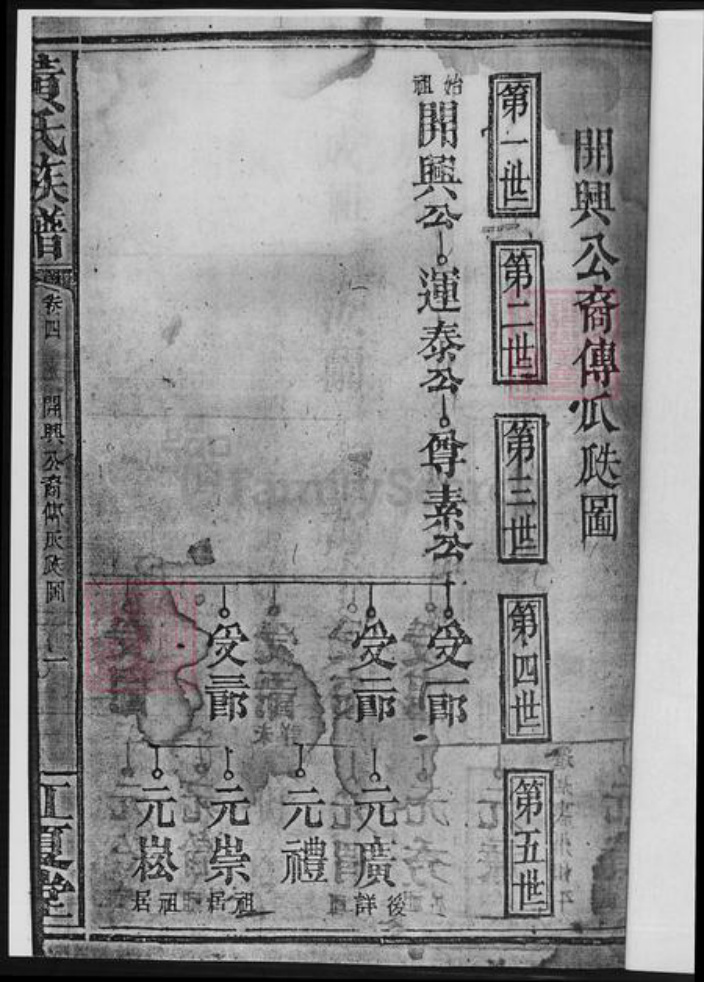 開興公裔傳瓜瓞圖
第一世
第二世
第三世
第四世
第五世
始祖
開興公
運泰公
尊素公
受一郎
受二郎
受三郎
元廣
後詳
元禮
元崇
祖居
元崧
祖居
黃氏族譜
卷四
開興公裔傳瓜瓞圖
一
江夏堂